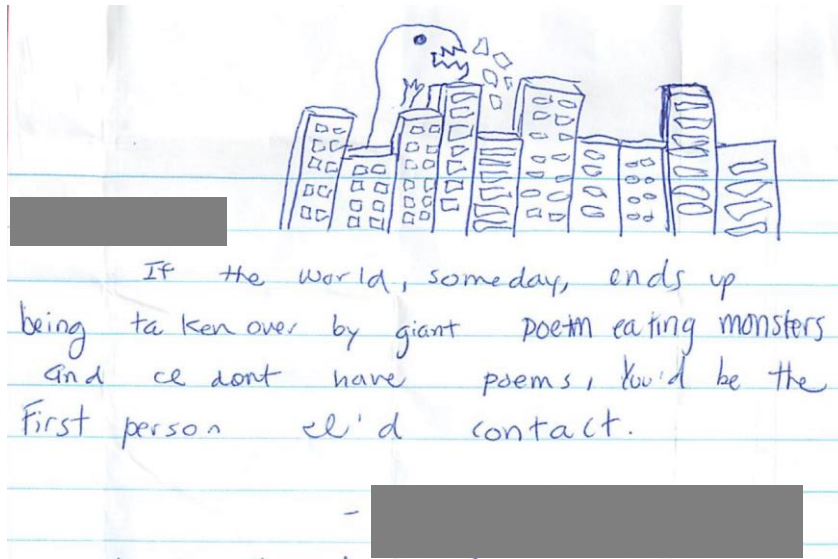 If the world, someday, ends up
being taken over by giant poem eating monsters
and I dont have poems, You'd be the
First person I'd contact.
-